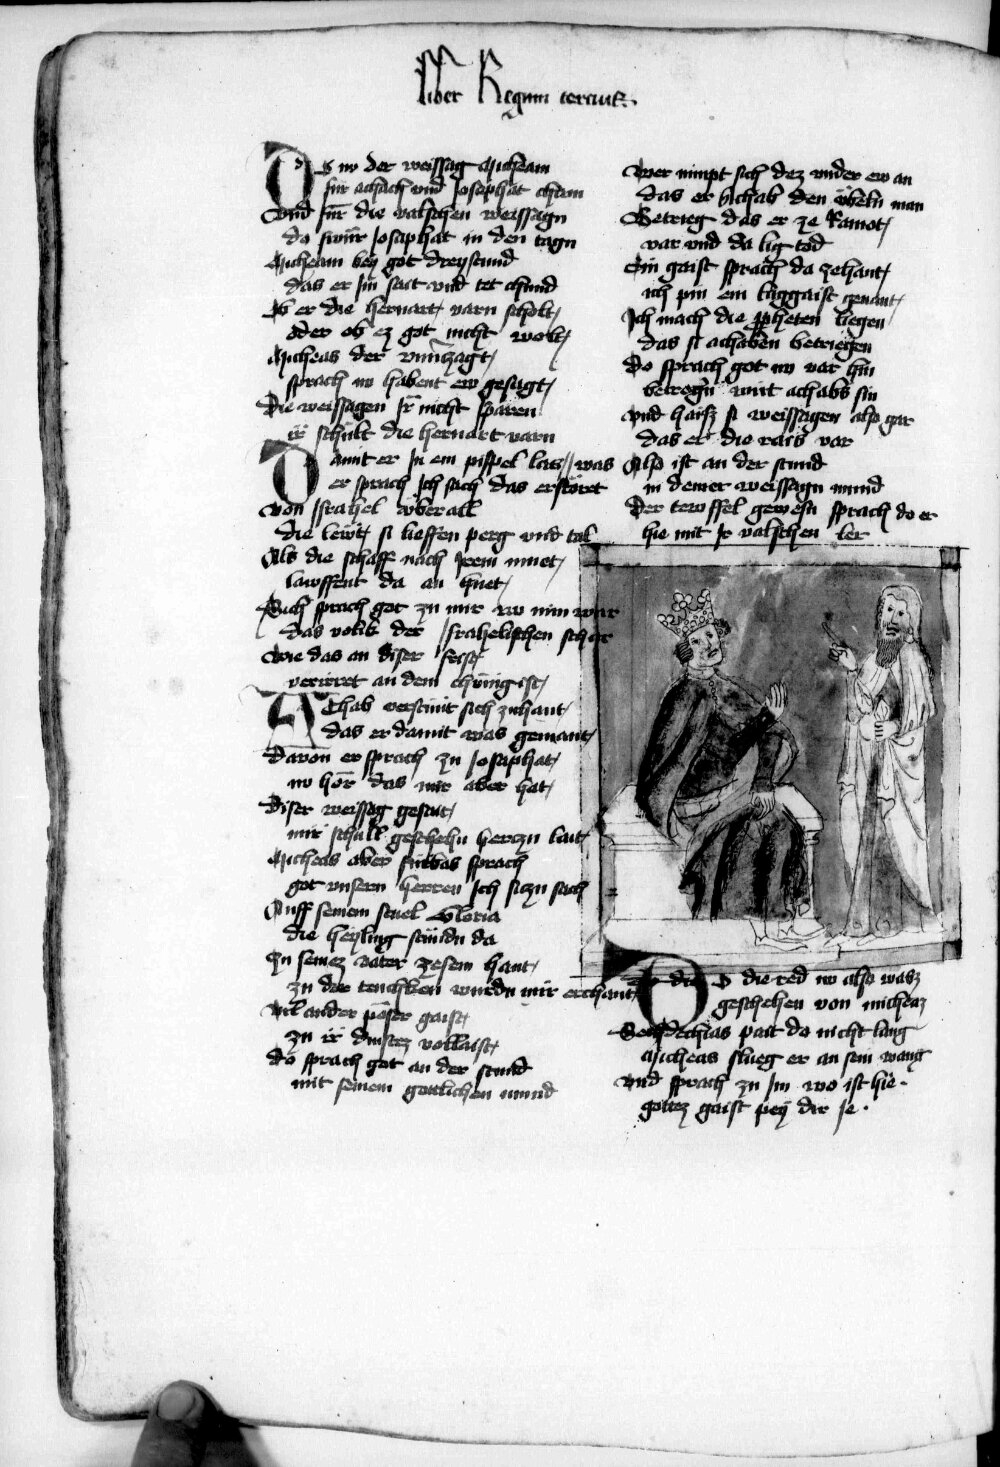 Liber Regum tercius
Do nw der weissag Micheam
für achab vnd Josaphat cham
Vnd für die valschen weissagn
do swür Josaphat in den tagn
Micheam bey got dreystund
das er Jm sait vnd tet chund
Ob er die heruart varn scholt
oder ob ez got nicht wolt
Micheas der vnuerzagt
sprach nw habent ew gesagt
Die weissagen Jr nicht sparen
ir schült die heruart varn
Damit er Jn ein pispel las was
er sprach Jch sach das erstöret
Von Jsrahel vberall
die lewt si lieffen perg vnd tal
Als die schaff nach Jrem muet
lawffent da an huet
Auch sprach got zu mir nw nim war
das volkh der Jsrahelischen schar
Wie das an diser frist
verirret an dem chünig ist
Achab verstuint sich zuhant
das er damit was gemant
Dauon er sprach zu Josaphat
nw hör das mir aber hat
Diser weissag geseit
mir schüll geschehn herczn lait
Micheas aber fürbas sprach
got vnsern herren Jch siczn sach
Auff seinem stuel Gloria
die heyling stündn da
Zu seinez vater zesem hant
zu der tenckhen wurdn mir erchant
Vil ander pöser gaist
zu ir dinstez vollaist
Do sprach got an der stund
mit seinem gottlichen mund
Wer nimpt sich dez vnder ew an
das er Achab den übeln man
Betrieg das er ze Ramot
var vnd da lig tod
Ein gaist sprach da zehant
ich pin ein luggaist genant
Jch mach die propheten liegen
das si achaben betriegen
Do sprach got nw var hin
betregn wirt achabs sin
Vnd haisz si weissagen also gar
das er die rais var
Also ist an der stund
in deiner weissagn mund
Der tewffel gewesn sprach do er
hie mit Jr valschen ler
Do die red nw also wasz
geschehen von micheaz
Sedechias pait do nicht lang
Micheas slueg er an sein wang
Vnd sprach zu Jm wo ist hie
gottez gaist pey dir Je